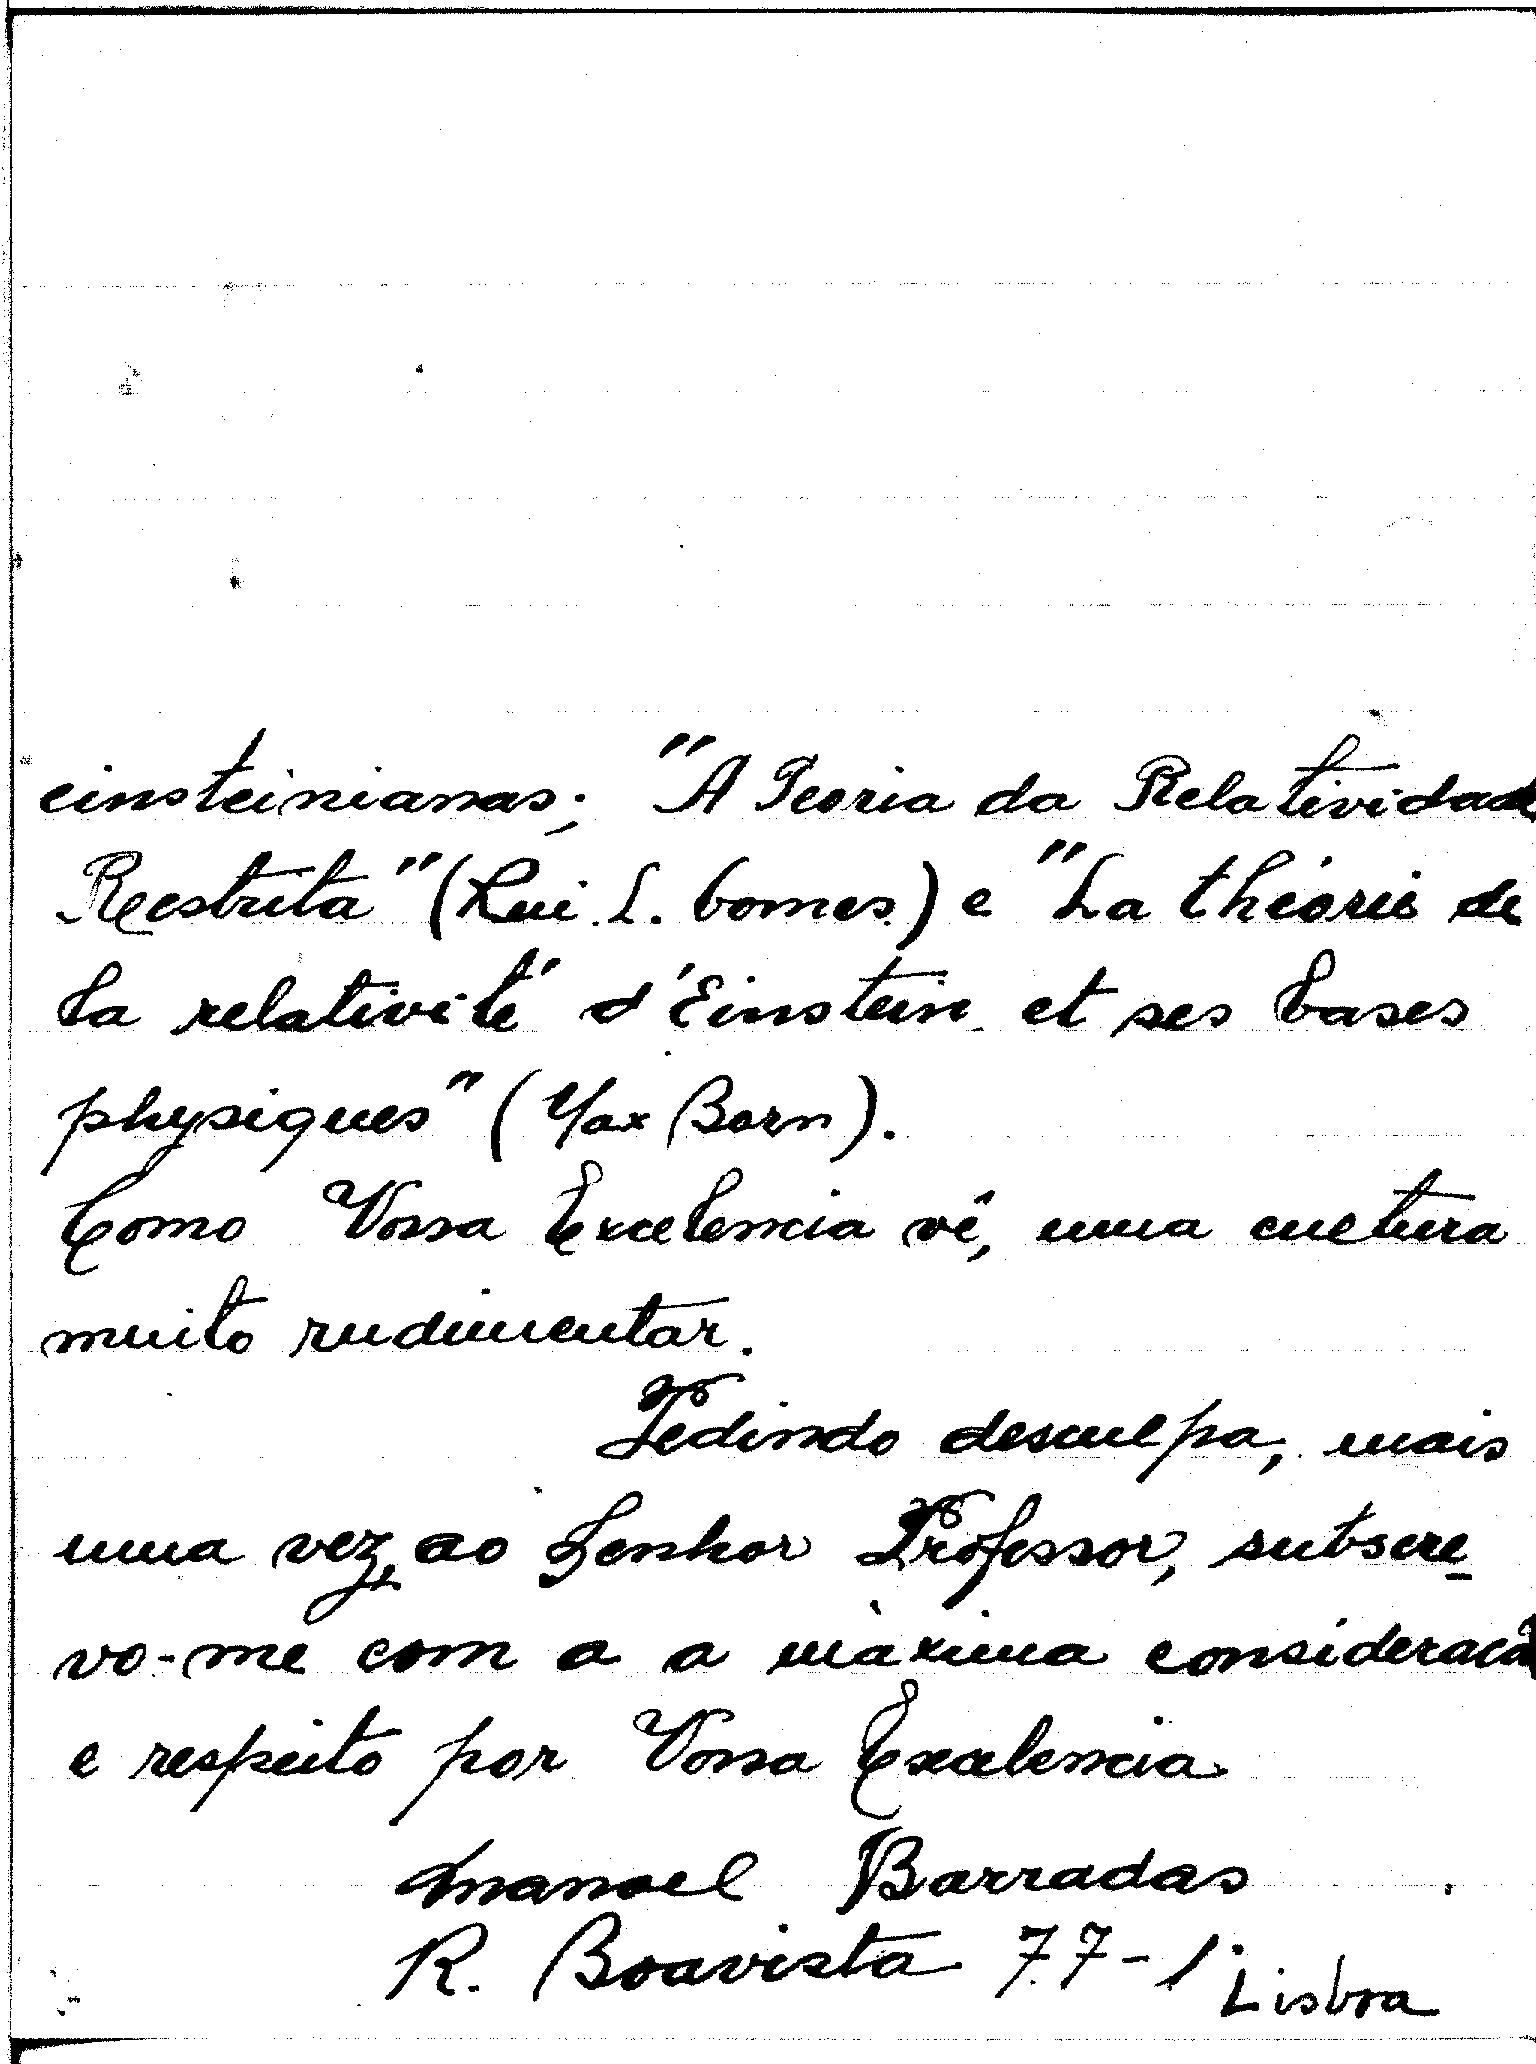 einsteinianas; "A Teoria da Relatividade
Reestrita" (Rui L. Gomes) e "La théorie de
la relativité d'Einstein et ses bases
physiques" (Max Born).
Como Vossa Excelencia vê, uma cultura
muito rudimentar.
Pedindo desculpa, mais
uma vez, ao Senhor Professor, subscre
vo-me com a a màxima consideracão
e respeito por Vossa Excelencia
Manoel Barradas
R. Boavista 77-1.
Lisboa